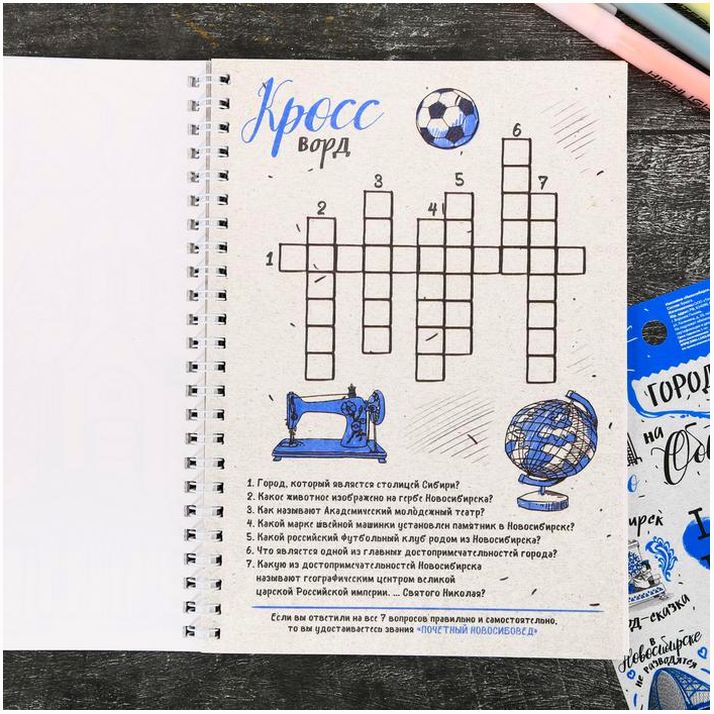 Кросс
ворд
6
3
5
7
2
4
1
1. Город, который является столицей Сибири?
2. Какое животное изображено на гербе Новосибирска?
3. Как называют Академический молодежный театр?
4. Какой марке швейной машинки установлен памятник в Новосибирске?
5. Какой российский футбольный клуб родом из Новосибирска?
6. Что является одной из главных достопримечательностей города?
7. Какую из достопримечательностей Новосибирска
называют географическим центром великой
царской Российской империи. ... Святого Николая?
Если вы ответили на все 7 вопросов правильно и самостоятельно,
то вы удостаиваетесь звания «ПОЧЕТНЫЙ НОВОСИБОВЕД»
ГОРОД
на
Об
в
Новосибирске
не разводятся